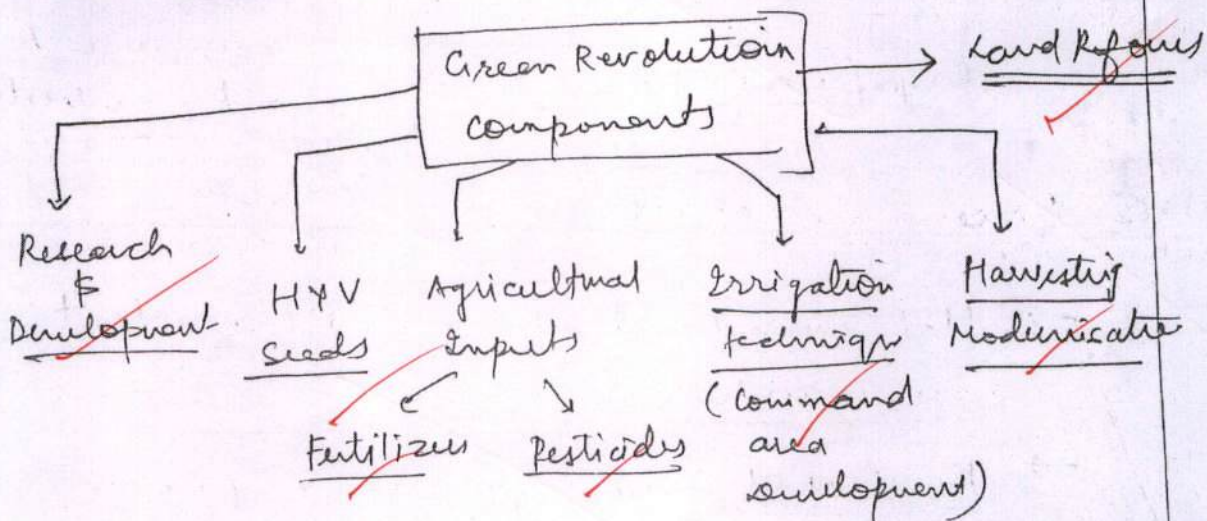 Green Revolution
Components
Land Reforms
Research
&
Development
HYV
Seeds
Agricultural
Inputs
Fertilizers
Pesticides
Irrigation
technique
(Command
area
Development)
Harvesting
Modernisation